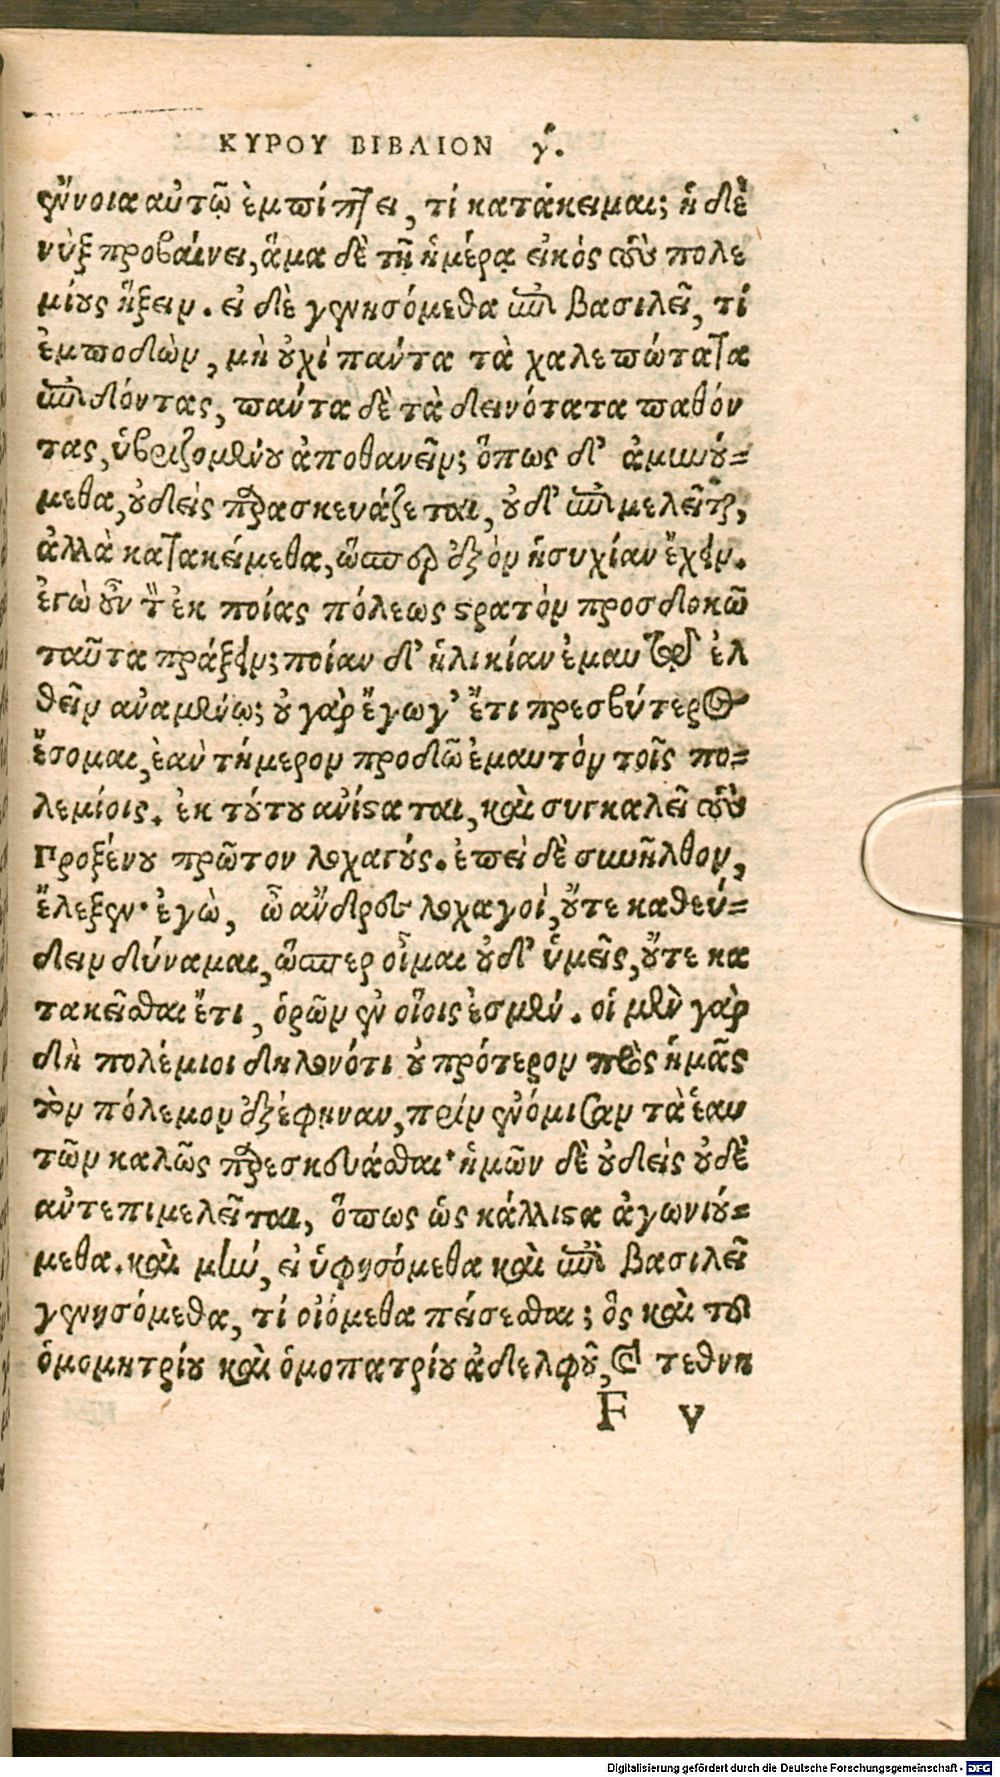 ΚΥΡΟΥ ΒΙΒΛΙΟΝ γ´.
ἔννοια αὐτῷ ἐμπίπτει, τί κατάκειμαι; ἡ δὲ
νὺξ προβαίνει, ἅμα δὲ τῇ ἡμέρᾳ εἰκὸς τοὺς πολε
μίους ἥξειν. εἰ δὲ γενησόμεθα ἐπὶ βασιλεῖ, τί
ἐμποδὼν, μὴ οὐχὶ πάντα τὰ χαλεπώτατα
ἐπιδόντας, πάντα δὲ τὰ δεινότατα παθόν
τας, ὑβριζομένου ἀποθανεῖν; ὅπως δ' ἀμυνού-
μεθα, οὐδεὶς παρασκευάζεται, οὐδ' ἐπιμελεῖται,
ἀλλὰ κατακείμεθα, ὥσπερ ἐξὸν ἡσυχίαν ἔχειν.
ἐγὼ οὖν τὸν ἐκ ποίας πόλεως στρατὸν προσδοκῶ
ταῦτα πράξειν; ποίαν δ' ἡλικίαν ἐμαυτῷ ἐλ
θεῖν ἀναμένω; οὐ γὰρ ἔγωγ' ἔτι πρεσβύτερος
ἔσομαι, ἐὰν τήμερον προδῶ ἐμαυτὸν τοῖς πο-
λεμίοις. ἐκ τούτου ἀνίσταται, καὶ συγκαλεῖ τοὺς
Προξένου πρῶτον λοχαγούς. ἐπεὶ δὲ συνῆλθον,
ἔλεξεν· ἐγὼ, ὦ ἄνδρες λοχαγοὶ, οὔτε καθεύ-
δειν δύναμαι, ὥσπερ οἶμαι οὐδ' ὑμεῖς, οὔτε κα
τακεῖσθαι ἔτι, ὁρῶν ἐν οἵοις ἐσμέν. οἱ μὲν γὰρ
δὴ πολέμιοι δηλονότι οὐ πρότερον πρὸς ἡμᾶς
τὸν πόλεμον ἐξέφηναν, πρὶν ἐνόμισαν τὰ ἑαυ
τῶν καλῶς παρεσκευάσθαι· ἡμῶν δὲ οὐδεὶς οὐδὲ
ἀντεπιμελεῖται, ὅπως ὡς κάλλιστα ἀγωνιού-
μεθα. καὶ μὴν, εἰ ὑφησόμεθα καὶ ἐπὶ βασιλεῖ
γενησόμεθα, τί οἰόμεθα πείσεσθαι; ὃς καὶ τοῦ
ὁμομητρίου καὶ ὁμοπατρίου ἀδελφοῦ, καὶ τεθνη
F v
Digitalisierung gefördert durch die Deutsche Forschungsgemeinschaft - DFG